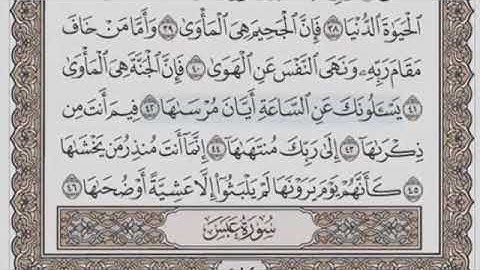 الْحَيَوٰةَ الدُّنْيَا ٣٨ فَإِنَّ الْجَحِيمَ هِيَ الْمَأْوَىٰ ٣٩ وَأَمَّا مَنْ خَافَ
مَقَامَ رَبِّهِۦ وَنَهَى النَّفْسَ عَنِ الْهَوَىٰ ٤٠ فَإِنَّ الْجَنَّةَ هِيَ الْمَأْوَىٰ
٤١ يَسْـَٔلُونَكَ عَنِ السَّاعَةِ أَيَّانَ مُرْسَىٰهَا ٤٢ فِيمَ أَنتَ مِن
ذِكْرَىٰهَا ٤٣ إِلَىٰ رَبِّكَ مُنتَهَىٰهَا ٤٤ إِنَّمَا أَنتَ مُنذِرُ مَن يَخْشَىٰهَا
٤٥ كَأَنَّهُمْ يَوْمَ يَرَوْنَهَا لَمْ يَلْبَثُوا إِلَّا عَشِيَّةً أَوْ ضُحَىٰهَا ٤٦
سُورَةُ عَبَسَ